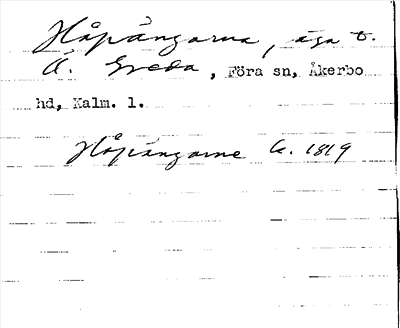 Håpängarna, äga t.
Ö. Greda, Föra sn, Åkerbo
hd, Kalm. l.
Håpängarne A. 1819